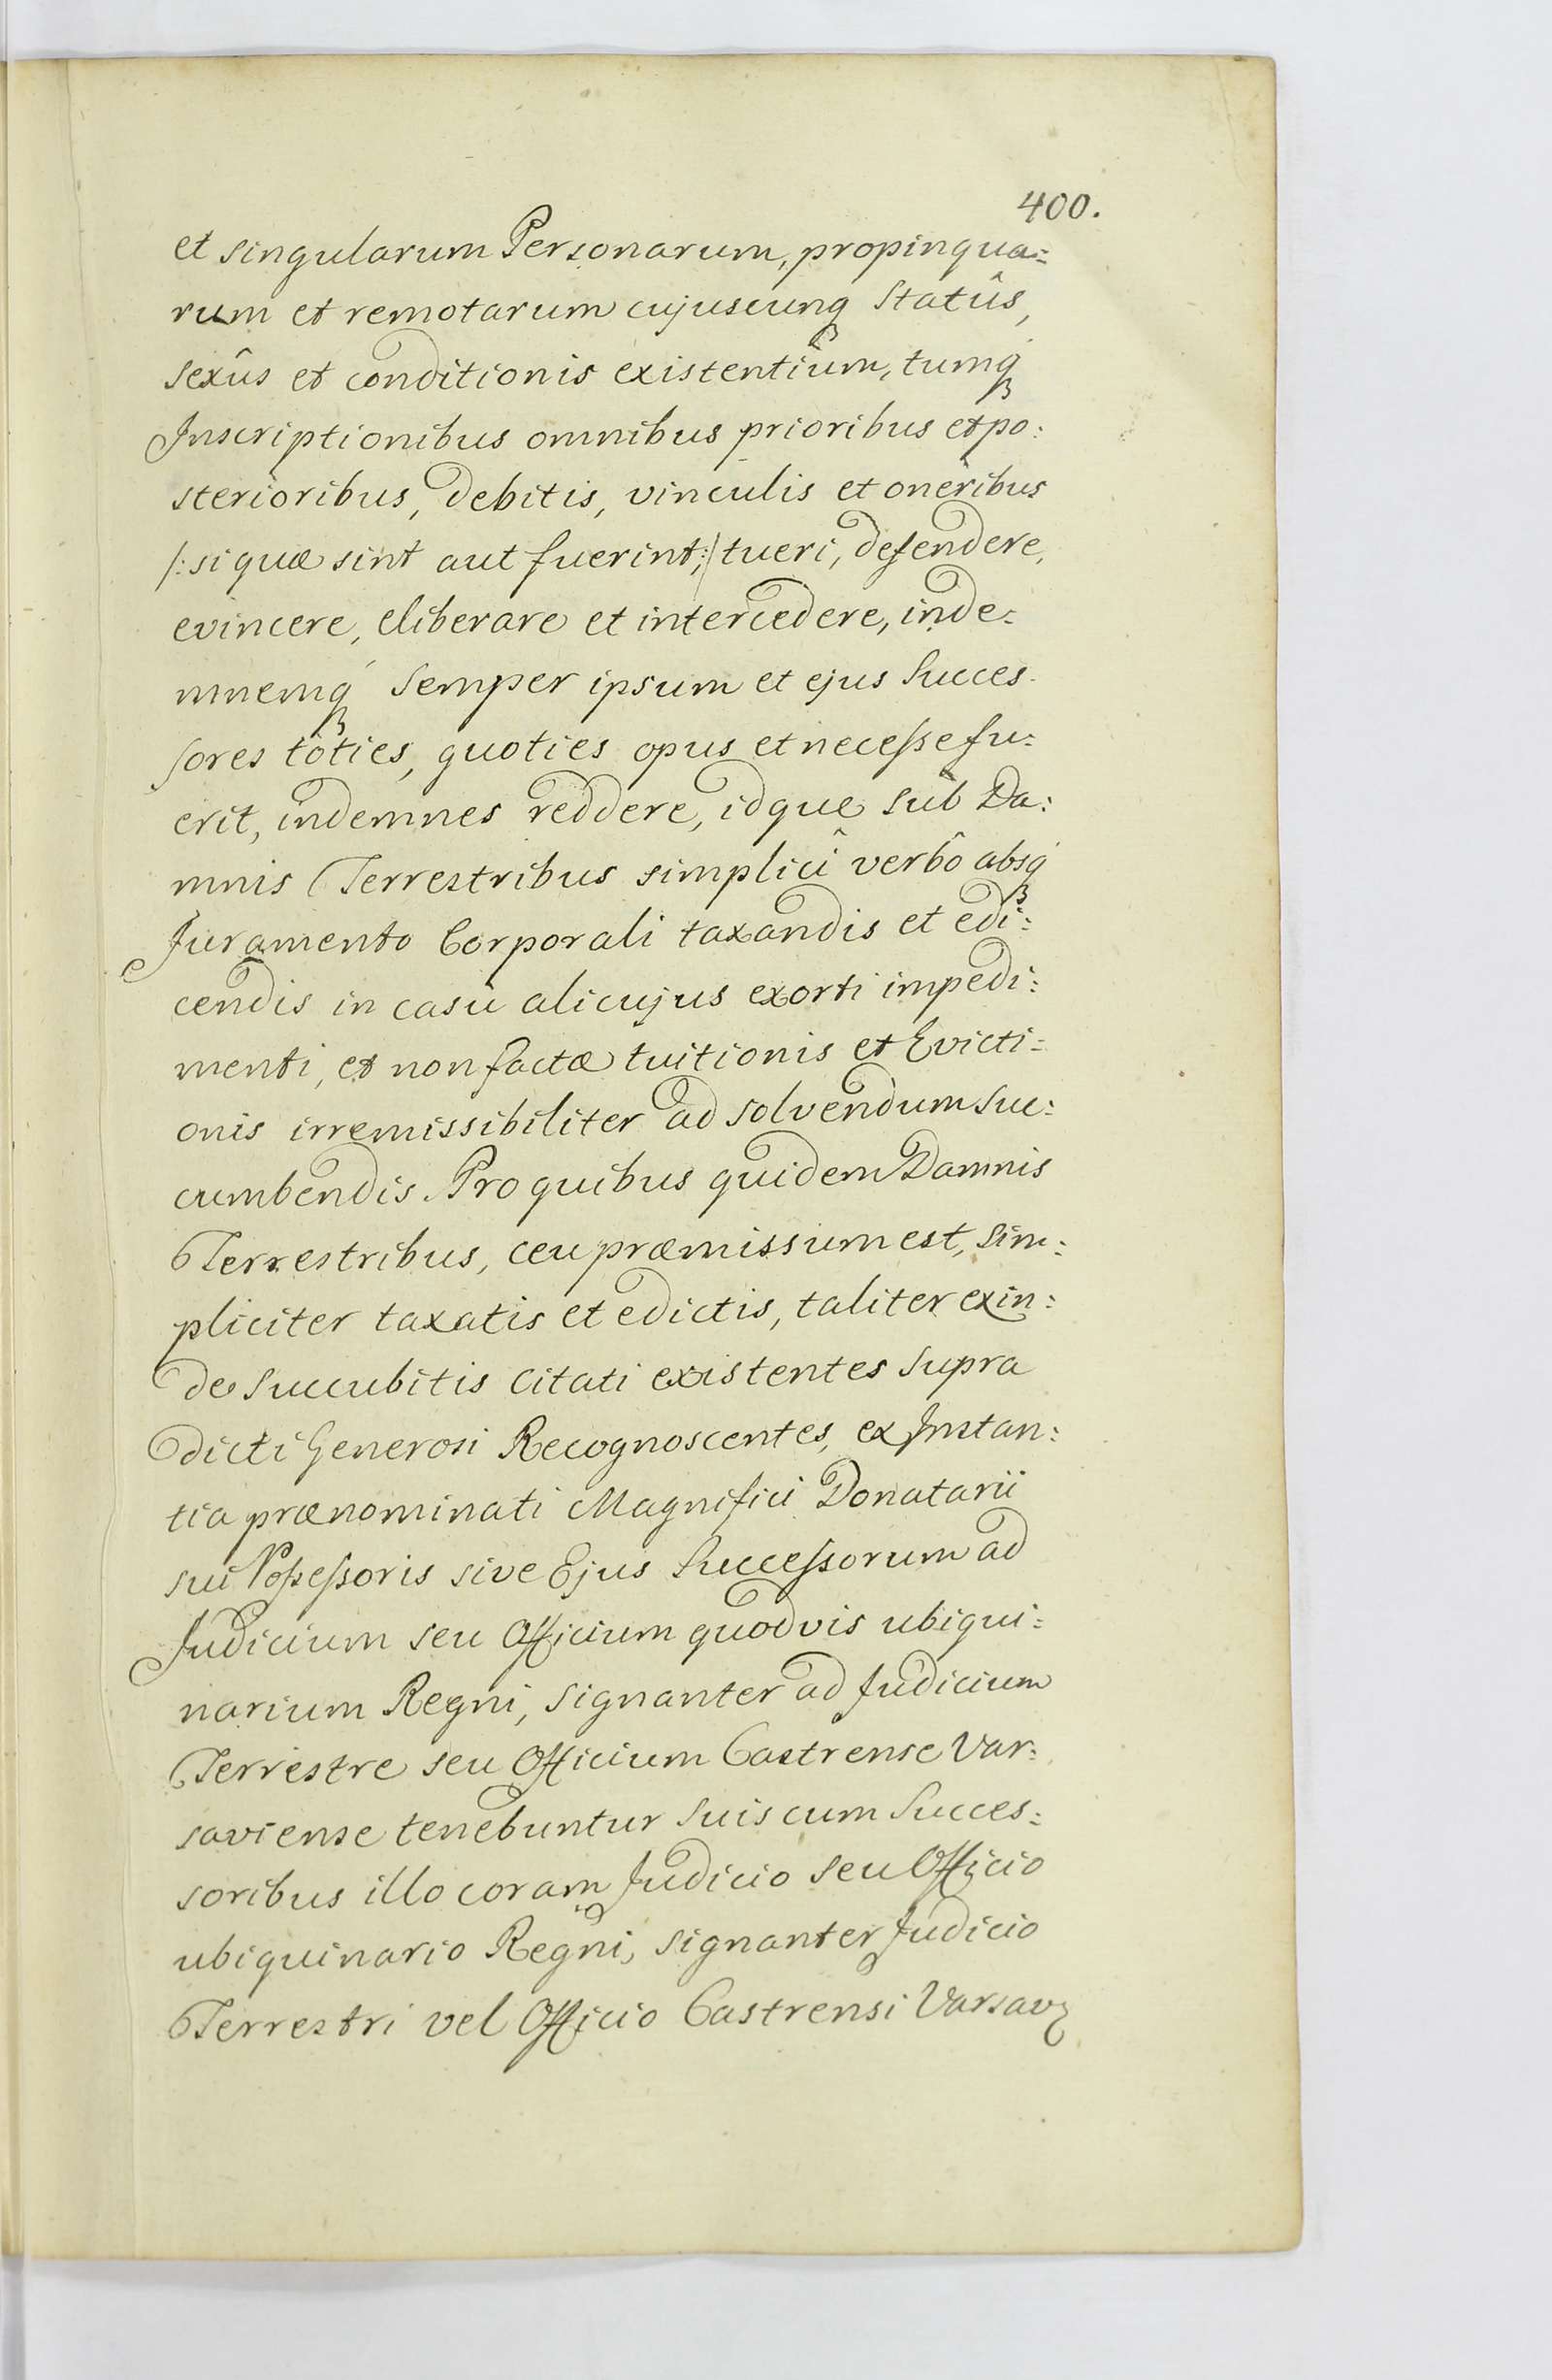 400.
et singularum Personarum, propinqua=
rum et remotarum cujuscunqꝫ Statûs,
sexûs et conditionis existentium, tumqꝫ
Inscriptionibus omnibus prioribus et po:
sterioribus, debitis, vinculis et oneribus
/: si quæ sint aut fuerint, :/ tueri, defendere,
evincere, eliberare et intercedere, inde=
mnemqꝫ semper ipsum et ejus Succes-
sores toties, quoties opus et necesse fu:
erit, indemnes reddere, idque sub Da:
mnis Terrestribus simplici verbô absqꝫ
Juramento Corporali taxandis et edi:
cendis in casu alicujus exorti impedi:
menti, et non factæ tuitionis et Evicti=
onis irremissibiliter ad solvendum suc:
cumbendis. Pro quibus quidem Damnis
Terrestribus, ceu præmissum est, sim:
pliciter taxatis et edictis, taliter exin:
de succubitis citati existentes supra
dicti Generosi Recognoscentes, ex Instan:
tia prænominati Magnifici Donatarii
sui Possessoris sive Ejus Successorum ad
Judicium seu Officium quodvis ubiqui:
narium Regni, signanter ad Judicium
Terrestre seu Officium Castrense Var:
saviense tenebuntur suis cum Succes:
soribus illo coram Judicio seu Officio
ubiquinario Regni, signanter Judicio
Terrestri vel Officio Castrensi Varsavꝫ